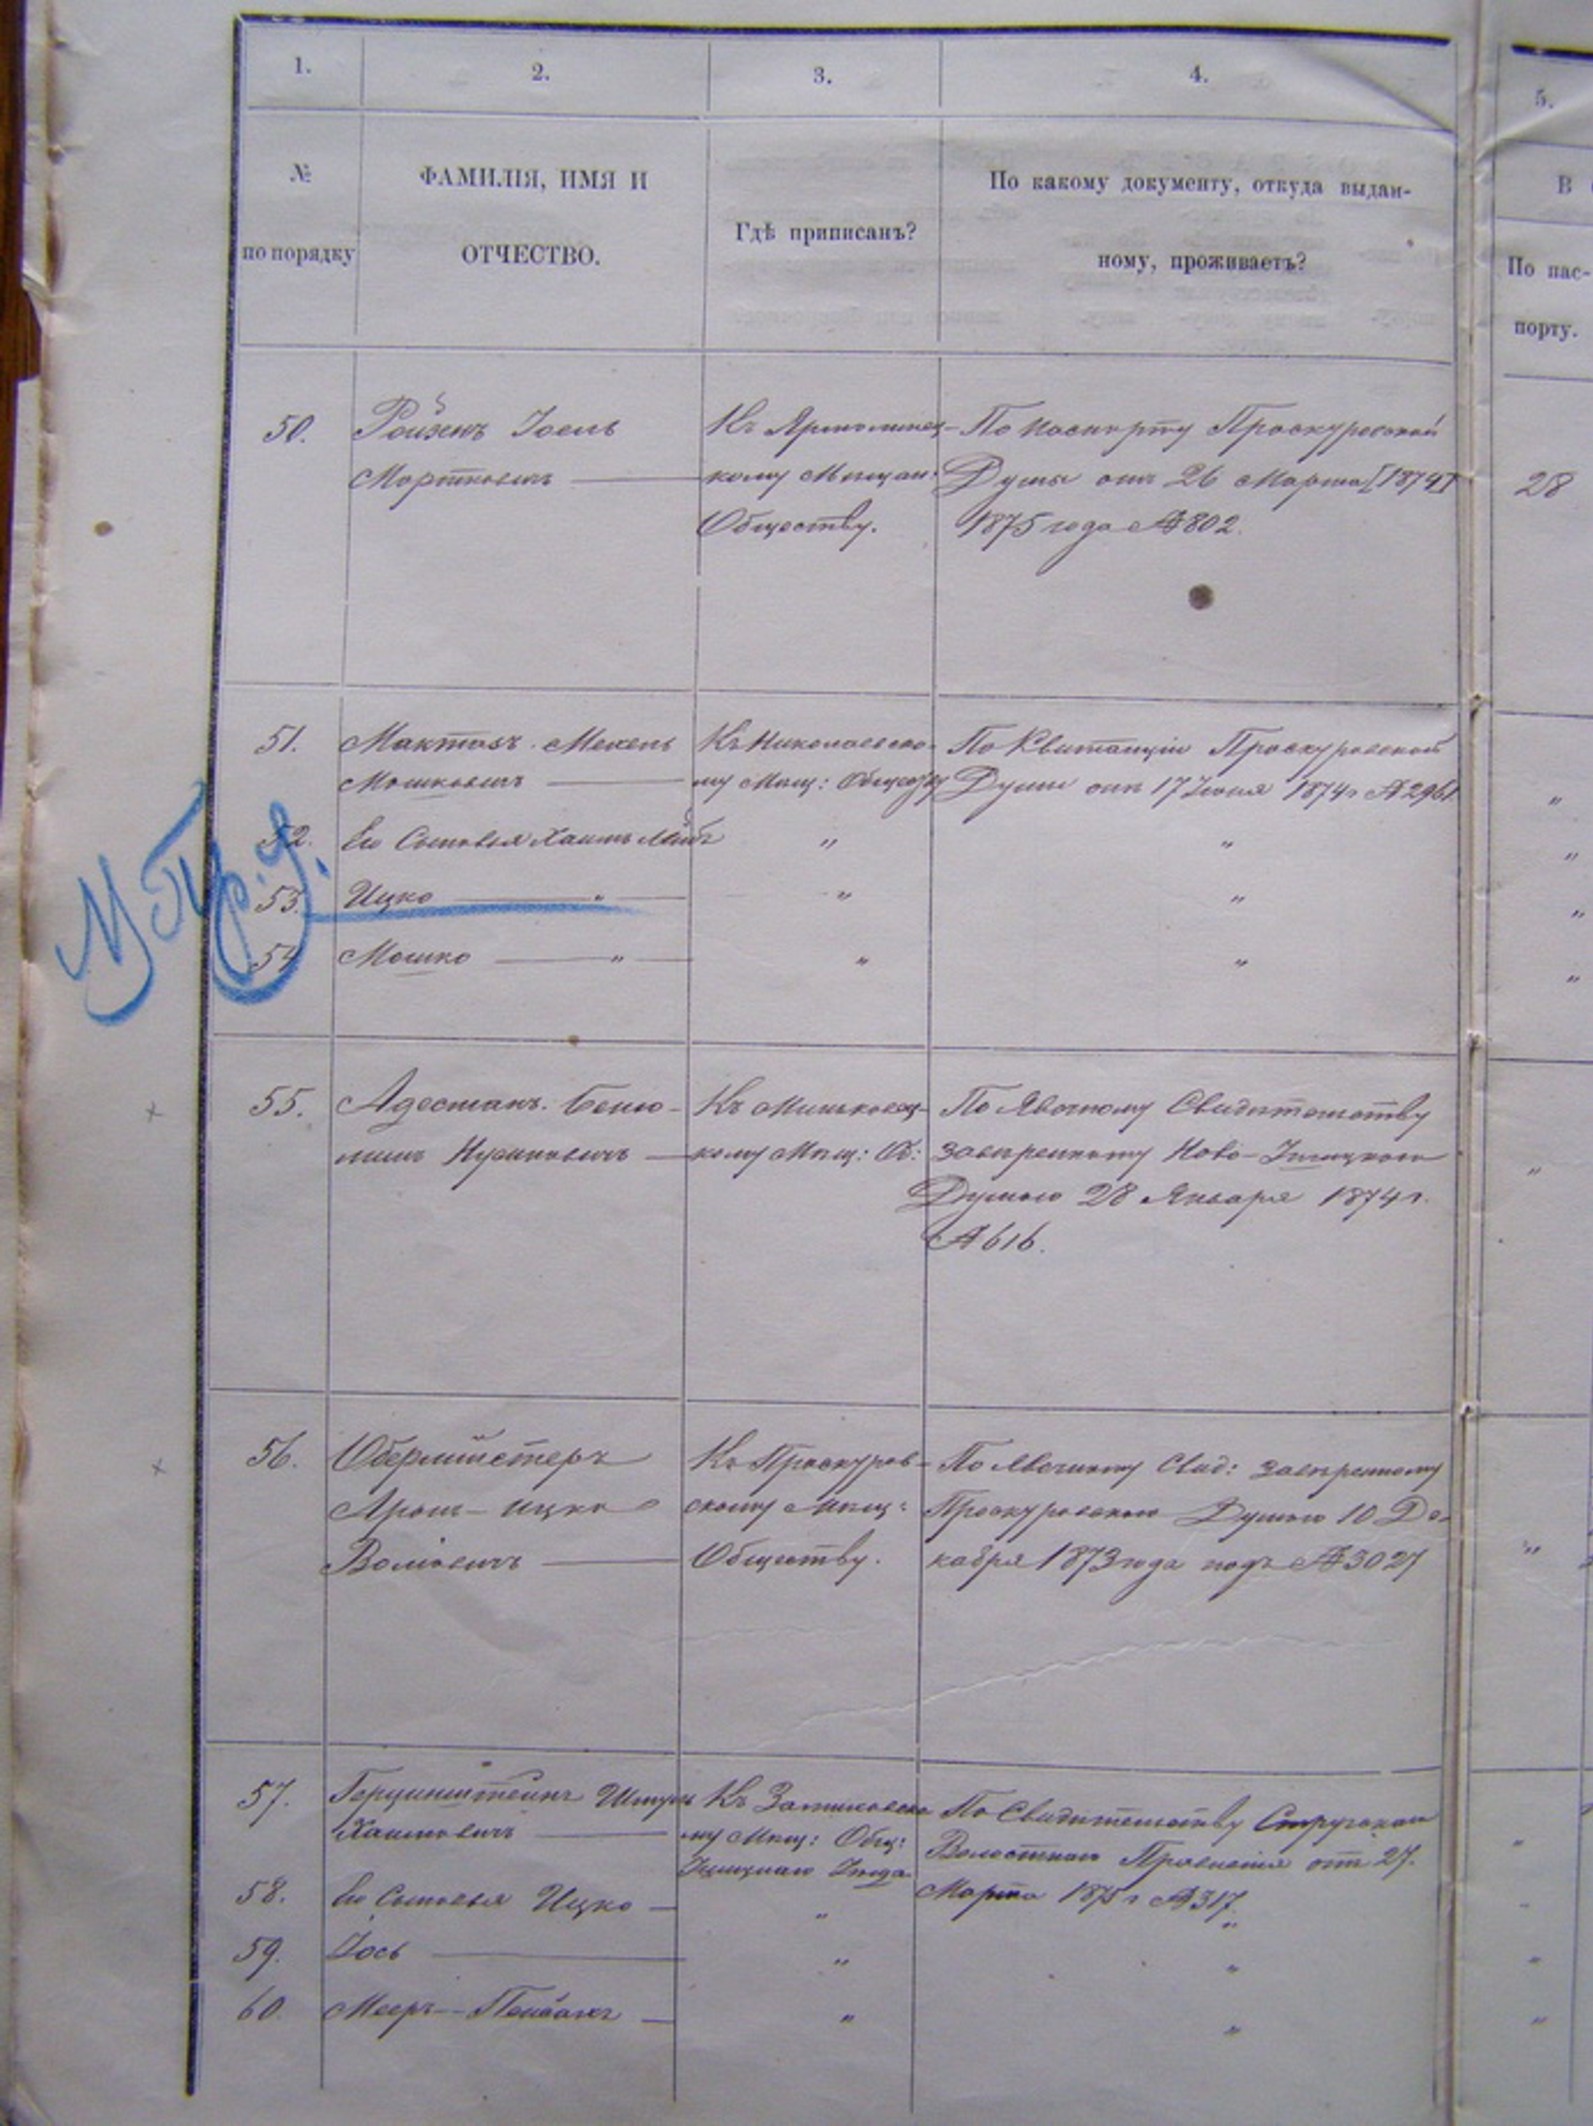 1.
2.
3.
4.
5.
№
по порядку
ФАМИЛІЯ, ИМЯ И
ОТЧЕСТВО.
Гдѣ приписанъ?
По какому документу, откуда выдан-
ному, проживаетъ?
В
По пас-
порту.
50.
Ройзенъ Іоель
Мортковичъ
Къ Ярмолинец-
кому Мѣщан:
Обществу.
По паспорту Проскуровской
Думы отъ 26 Марта [1874]
1875 года №802.
28
51.
Мошковичъ
Къ Николаевско-
му Мѣщ: Обществу
По Квитанціи Проскуровской
Думы отъ 17 Іюня 1874 г №2961
"
52.
Его Сыновья Хаимъ Лейбъ
"
"
"
53.
Ицко "
"
"
"
54
Мошко "
"
"
"
55.
Беню-
минъ Нусиновичъ
Къ Миньковец-
кому Мѣщ: Об:
По Явочному Свидѣтельству
завѣренному Ново-Ушицкою
Думою 28 Января 1874 г.
№616.
"
56.
Обермейстеръ
Аронъ-Ицко
Волковичъ
Къ Проскуров-
скому Мѣщ:
Обществу.
По явочному Свид: завѣренному
Проскуровскою Думою 10 Де-
кабря 1873 года подъ №3027
"
57.
Герценштейнъ Шмуль
Хаимовичъ
Къ Замиховско
му Мѣщ: Общ:
Ушицкаго Уѣзда
По Свидѣтельству Стругскаго
Волостнаго Правленія отъ 27.
Марта 1875 г №317.
"
58.
Его Сыновья Ицко
"
"
"
59.
Іось
"
"
"
60.
Мееръ-
"
"
"